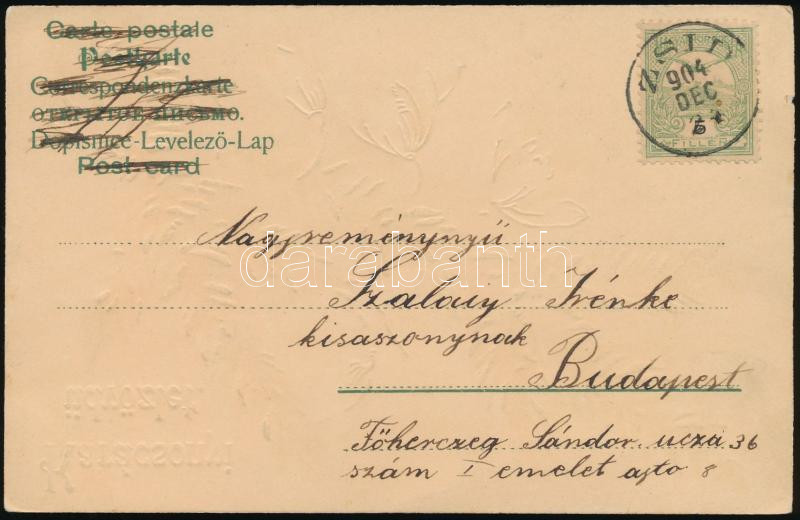 Carte postale
Postkarte
Correspondenzkarte
ОТКРЫТОЕ ПИСЬМО.
Dopisnice-Levelező-Lap
Post-card
ZSID
904
DEC
24
FILLÉR
Nagyreménynyű
Szalay Irénke
kisaszonynak
Budapest
Főherczeg Sándor ucza 36
szám I emelet ajto 8
darabanth